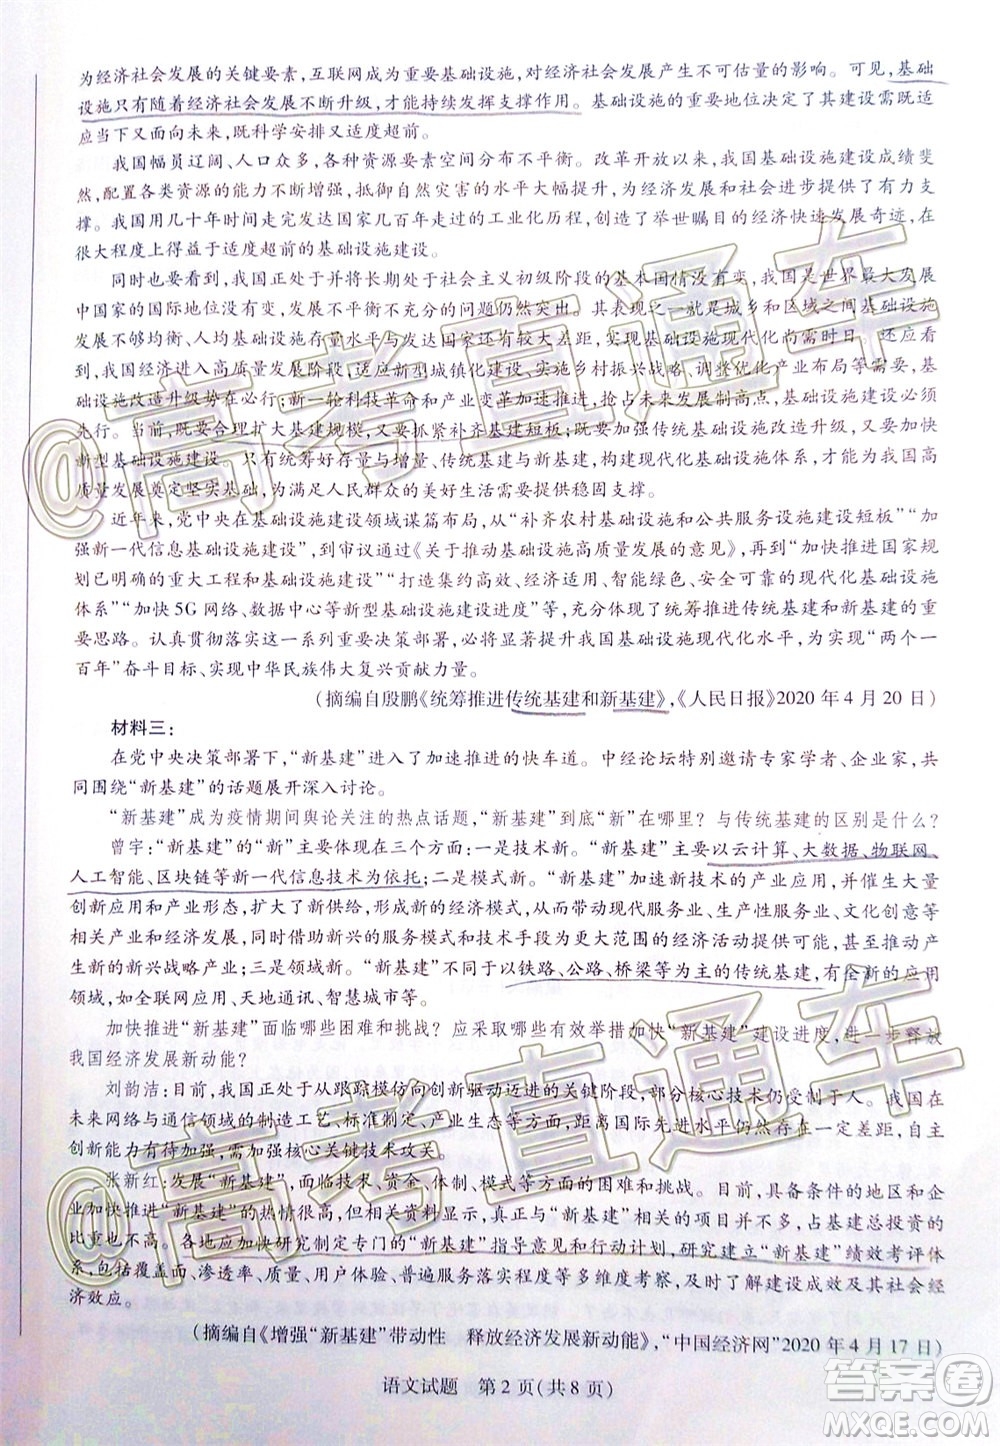 为经济社会发展的关键要素，互联网成为重要基础设施，对经济社会发展产生不可估量的影响。可见，基础
设施只有随着经济社会发展不断升级，才能持续发挥支撑作用。基础设施的重要地位决定了其建设需既适
应当下又面向未来，既科学安排又适度超前。
我国幅员辽阔、人口众多，各种资源要素空间分布不平衡。改革开放以来，我国基础设施建设成绩斐
然，配置各类资源的能力不断增强，抵御自然灾害的水平大幅提升，为经济发展和社会进步提供了有力支
撑。我国用几十年时间走完发达国家几百年走过的工业化历程，创造了举世瞩目的经济快速发展奇迹，在
很大程度上得益于适度超前的基础设施建设。
同时也要看到，我国正处于并将长期处于社会主义初级阶段的基本国情没有变，我国是世界最大发展
中国家的国际地位没有变，发展不平衡不充分的问题仍然突出。突出表现之一就是城乡和区域之间基础设施
发展不够均衡、人均基础设施存量水平与发达国家还有较大差距，实现基础设施现代化尚需时日。还应看到，
我国经济进入高质量发展阶段，适应新型城镇化建设、实施乡村振兴战略、优化产业布局等，都需要基础
设施改造升级势在必行；新一轮科技革命和产业变革加速推进，抢占未来发展制高点，基础设施建设必须
先行。为此，既要合理扩大基建规模，又要抓紧补齐基建短板；既要加强传统基础设施改造升级，又要加快
新型基础设施建设。只有统筹好存量与增量、传统基建与新基建，构建现代化基础设施体系，才能为我国高
质量发展奠定坚实基础，为满足人民群众的美好生活需要提供稳固支撑。
近年来，党中央在基础设施建设领域谋篇布局，从“补齐农村基础设施和公共服务设施建设短板”“加
强新一代信息基础设施建设”，到审议通过《关于推动基础设施高质量发展的意见》，再到“加快推进国家规
划已明确的重大工程和基础设施建设”“打造集约高效、经济适用、智能绿色、安全可靠的现代化基础设施
体系”“加快 5G 网络、数据中心等新型基础设施建设进度”等，充分体现了统筹推进传统基建和新基建的重
要思路。认真贯彻落实这一系列重要决策部署，必将显著提升我国基础设施现代化水平，为实现“两个一
百年”奋斗目标、实现中华民族伟大复兴贡献力量。
(摘编自殷鹏《统筹推进传统基建和新基建》，《人民日报》2020 年 4 月 20 日)
材料三：
在党中央决策部署下，“新基建”进入了加速推进的快车道。中经论坛特别邀请专家学者、企业家，共
同围绕“新基建”的话题展开深入讨论。
“新基建”成为疫情期间舆论关注的热点话题，“新基建”到底“新”在哪里？与传统基建的区别是什么？
曾宇：“新基建”的“新”主要体现在三个方面：一是技术新。“新基建”主要以云计算、大数据、物联网、
人工智能、区块链等新一代信息技术为依托；二是模式新。“新基建”加速新技术的产业应用，并催生大量
创新应用和产业形态，扩大了新供给，形成新的经济模式，从而带动现代服务业、生产性服务业、文化创意等
相关产业和经济发展，同时借助新兴的服务模式和技术手段为更大范围的经济活动提供可能，催动产
生新的新兴战略产业；三是领域新。“新基建”不同于以铁路、公路、桥梁等为主的传统基建，有全新的应用
领域，如全联网应用、天地通讯、智慧城市等。
加快推进“新基建”面临哪些困难和挑战？应采取哪些有效举措加快“新基建”建设进度，进一步释放
我国经济发展新动能？
刘韵洁：目前，我国正处于从跟踪模仿向创新驱动迈进的关键阶段，部分核心技术仍受制于人。我国在
未来网络与通信领域的制造工艺、标准制定、产业生态等方面，距离国际先进水平仍然存在一定差距，自主
创新能力有待加强，需加强核心关键技术攻关。
张新红：发展“新基建”，面临技术、资金、体制、模式等方面的困难和挑战。目前，具备条件的地区和企
业加快推进“新基建”的热情很高，但相关资料显示，真正与“新基建”相关的项目并不多，占基建总投资的
比重也不高。各地应加快研究制定专门的“新基建”指导意见和行动计划，研究建立“新基建”绩效考评体
系，包括覆盖面、渗透率、质量、用户体验、普遍服务落实程度等多维度考察，及时了解建设成效及其社会经
济效应。
(摘编自《增强“新基建”带动性 释放经济发展新动能》，“中国经济网”2020 年 4 月 17 日)
语文试题 第 2 页(共 8 页)
@高考直通车
@高考直通车
答案圈
MXQE.COM